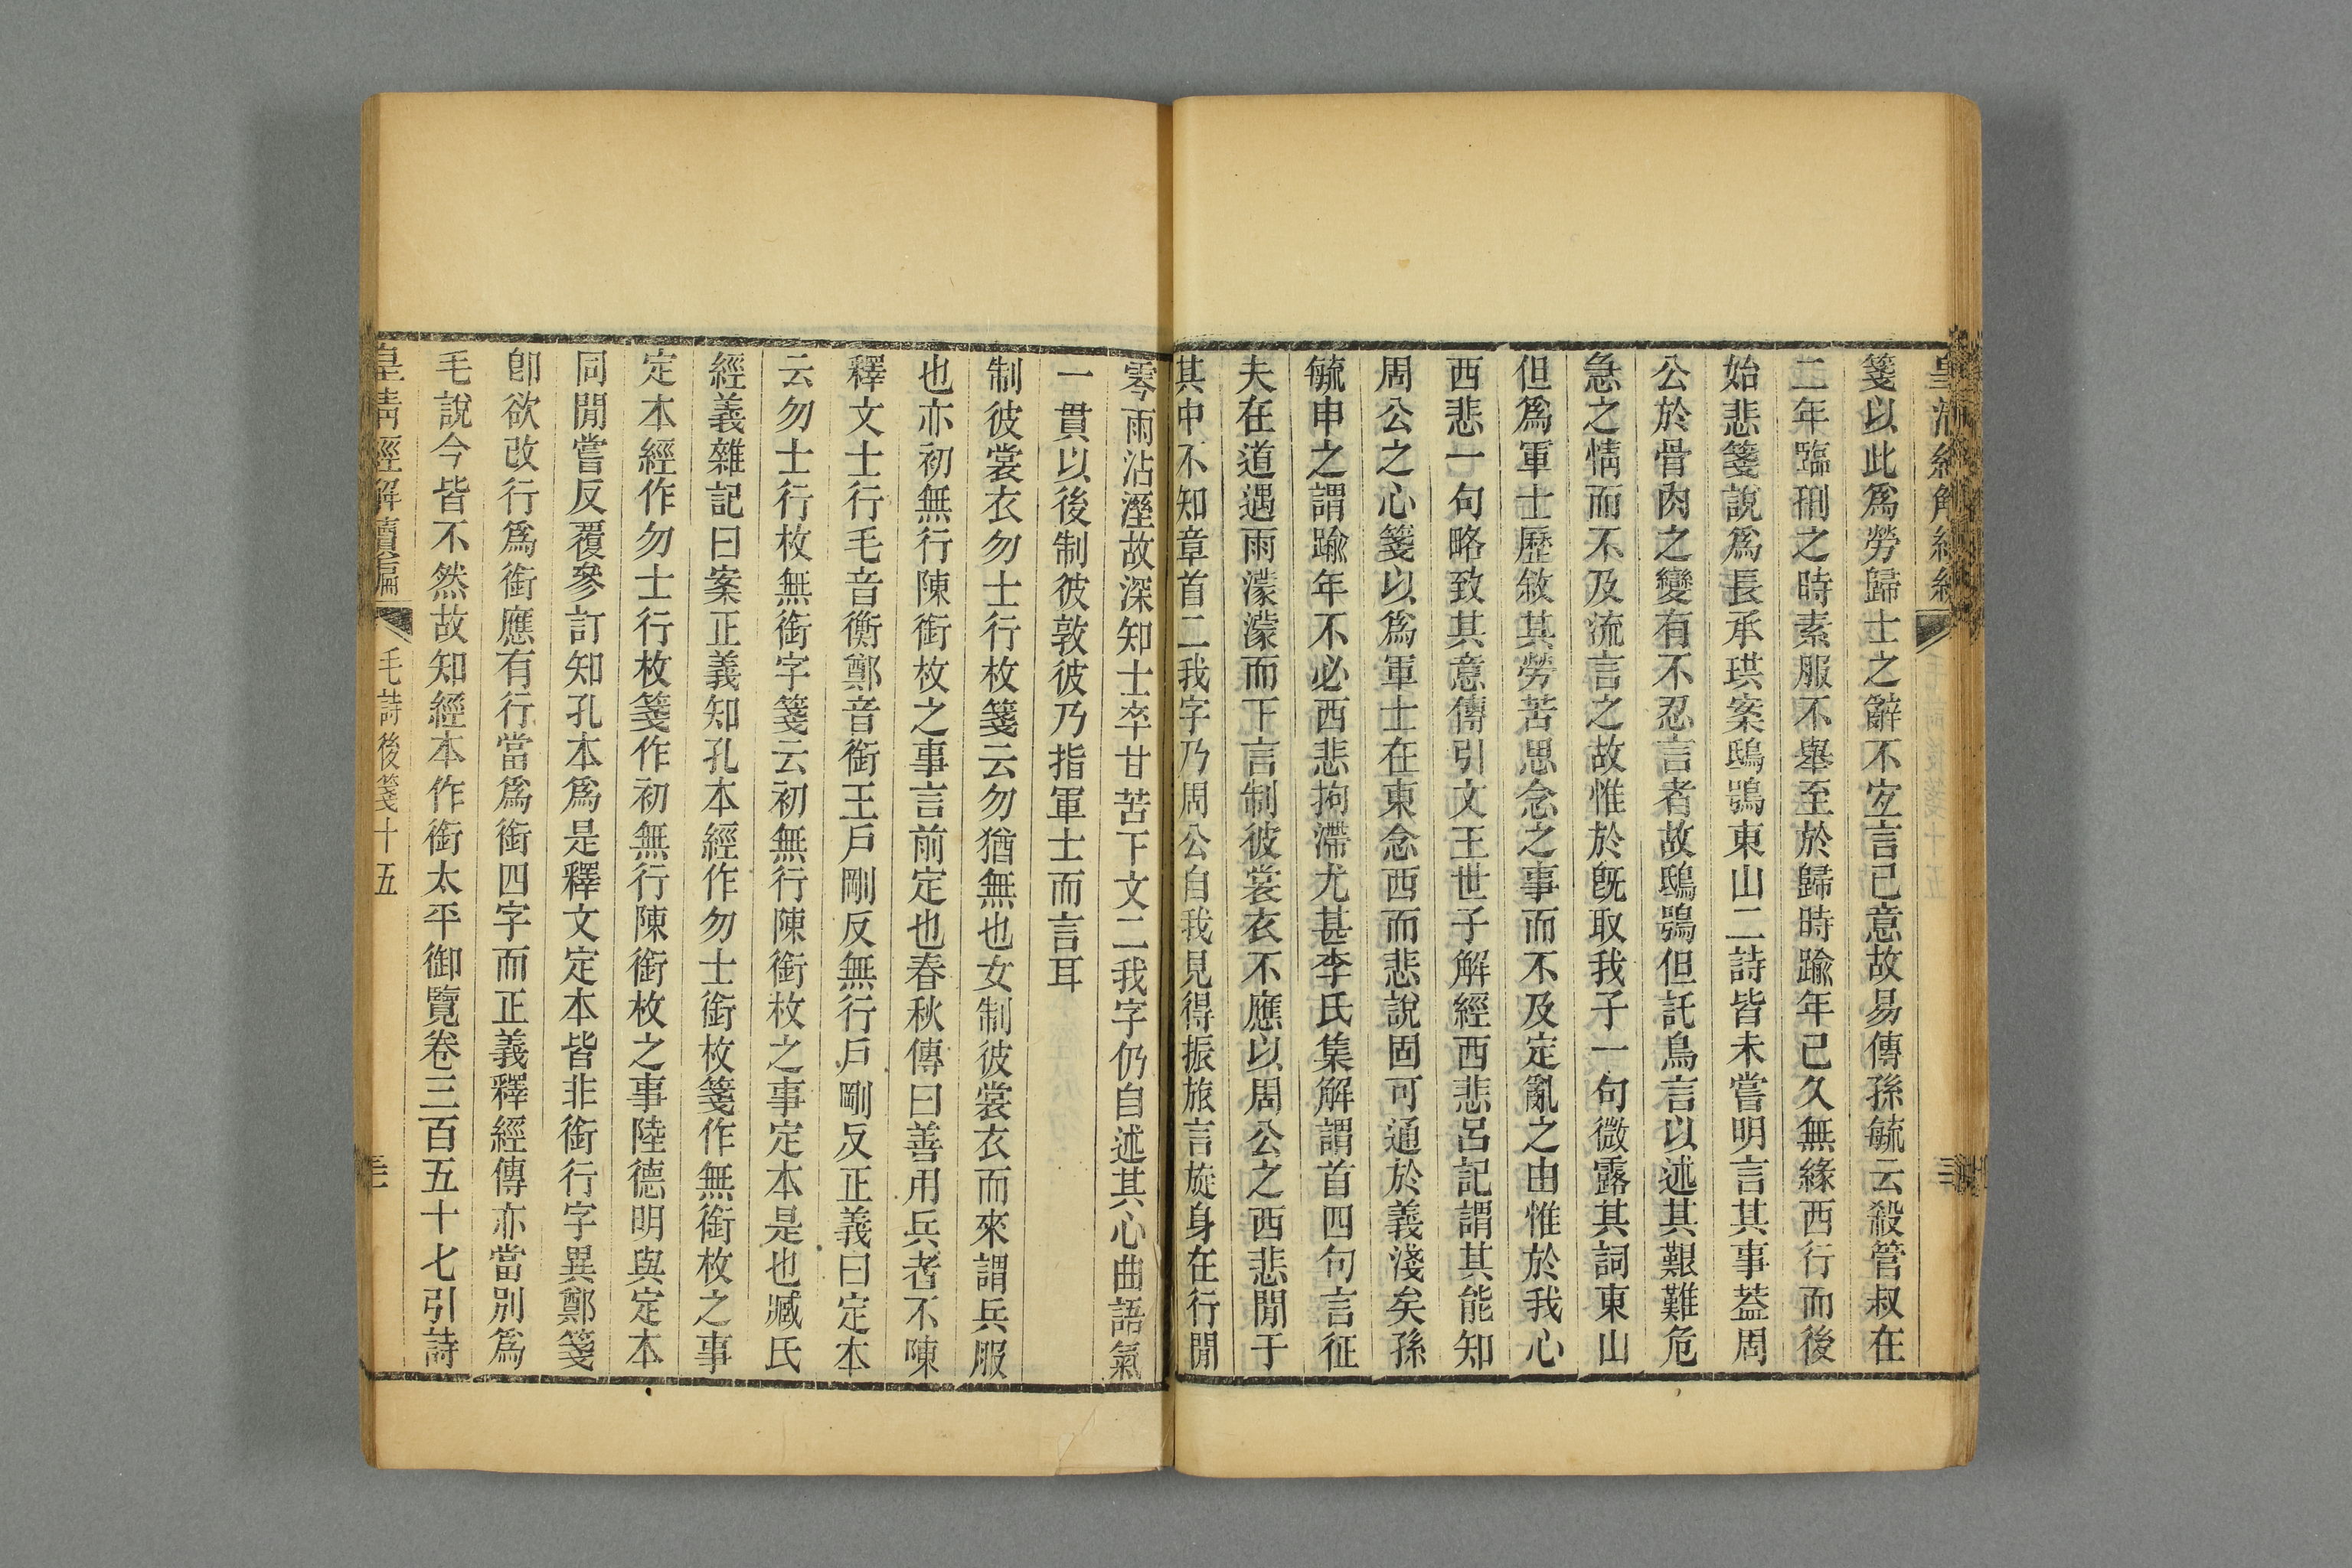 箋以此爲勞歸士之辭不宐言己意故易傳孫毓云殺管叔在
二年臨刑之時素服不舉至於歸時踰年已久無緣西行而後
始悲箋說爲長承珙案鴟鴞東山二詩皆未嘗明言其事葢周
公於骨肉之變有不忍言者故鴟鴞但託鳥言以述其艱難危
急之情而不及流言之故惟於旣取我子一句微露其詞東山
但爲軍士歷敘其勞苦思念之事而不及定亂之由惟於我心
西悲一句略致其意傳引文王世子解經西悲呂記謂其能知
周公之心箋以爲軍士在東念西而悲說固可通於義淺矣孫
毓申之謂踰年不必西悲拘滯尤甚李氏集解謂首四句言征
夫在道遇雨濛濛而下言制彼裳衣不應以周公之西悲閒于
其中不知章首二我字乃周公自我見得振旅言旋身在行閒
零雨沾溼故深知士卒甘苦下文二我字仍自述其心曲語氣
一貫以後制彼敦彼乃指軍士而言耳
制彼裳衣勿士行枚箋云勿猶無也女制彼裳衣而來謂兵服
也亦初無行陳銜枚之事言前定也春秋傳曰善用兵者不陳
釋文士行毛音衡鄭音銜王戶剛反無行戶剛反正義曰定本
云勿士行枚無銜字箋云初無行陳銜枚之事定本是也臧氏
經義雜記曰案正義知孔本經作勿士銜枚箋作無銜枚之事
定本經作勿士行枚箋作初無行陳銜枚之事陸德明與定本
同閒嘗反覆參訂知孔本爲是釋文定本皆非銜行字異鄭箋
卽欲改行爲銜應有行當爲銜四字而正義釋經傳亦當別爲
毛說今皆不然故知經本作銜太平御覽卷三百五十七引詩
皇清經解續編
毛詩後箋十五